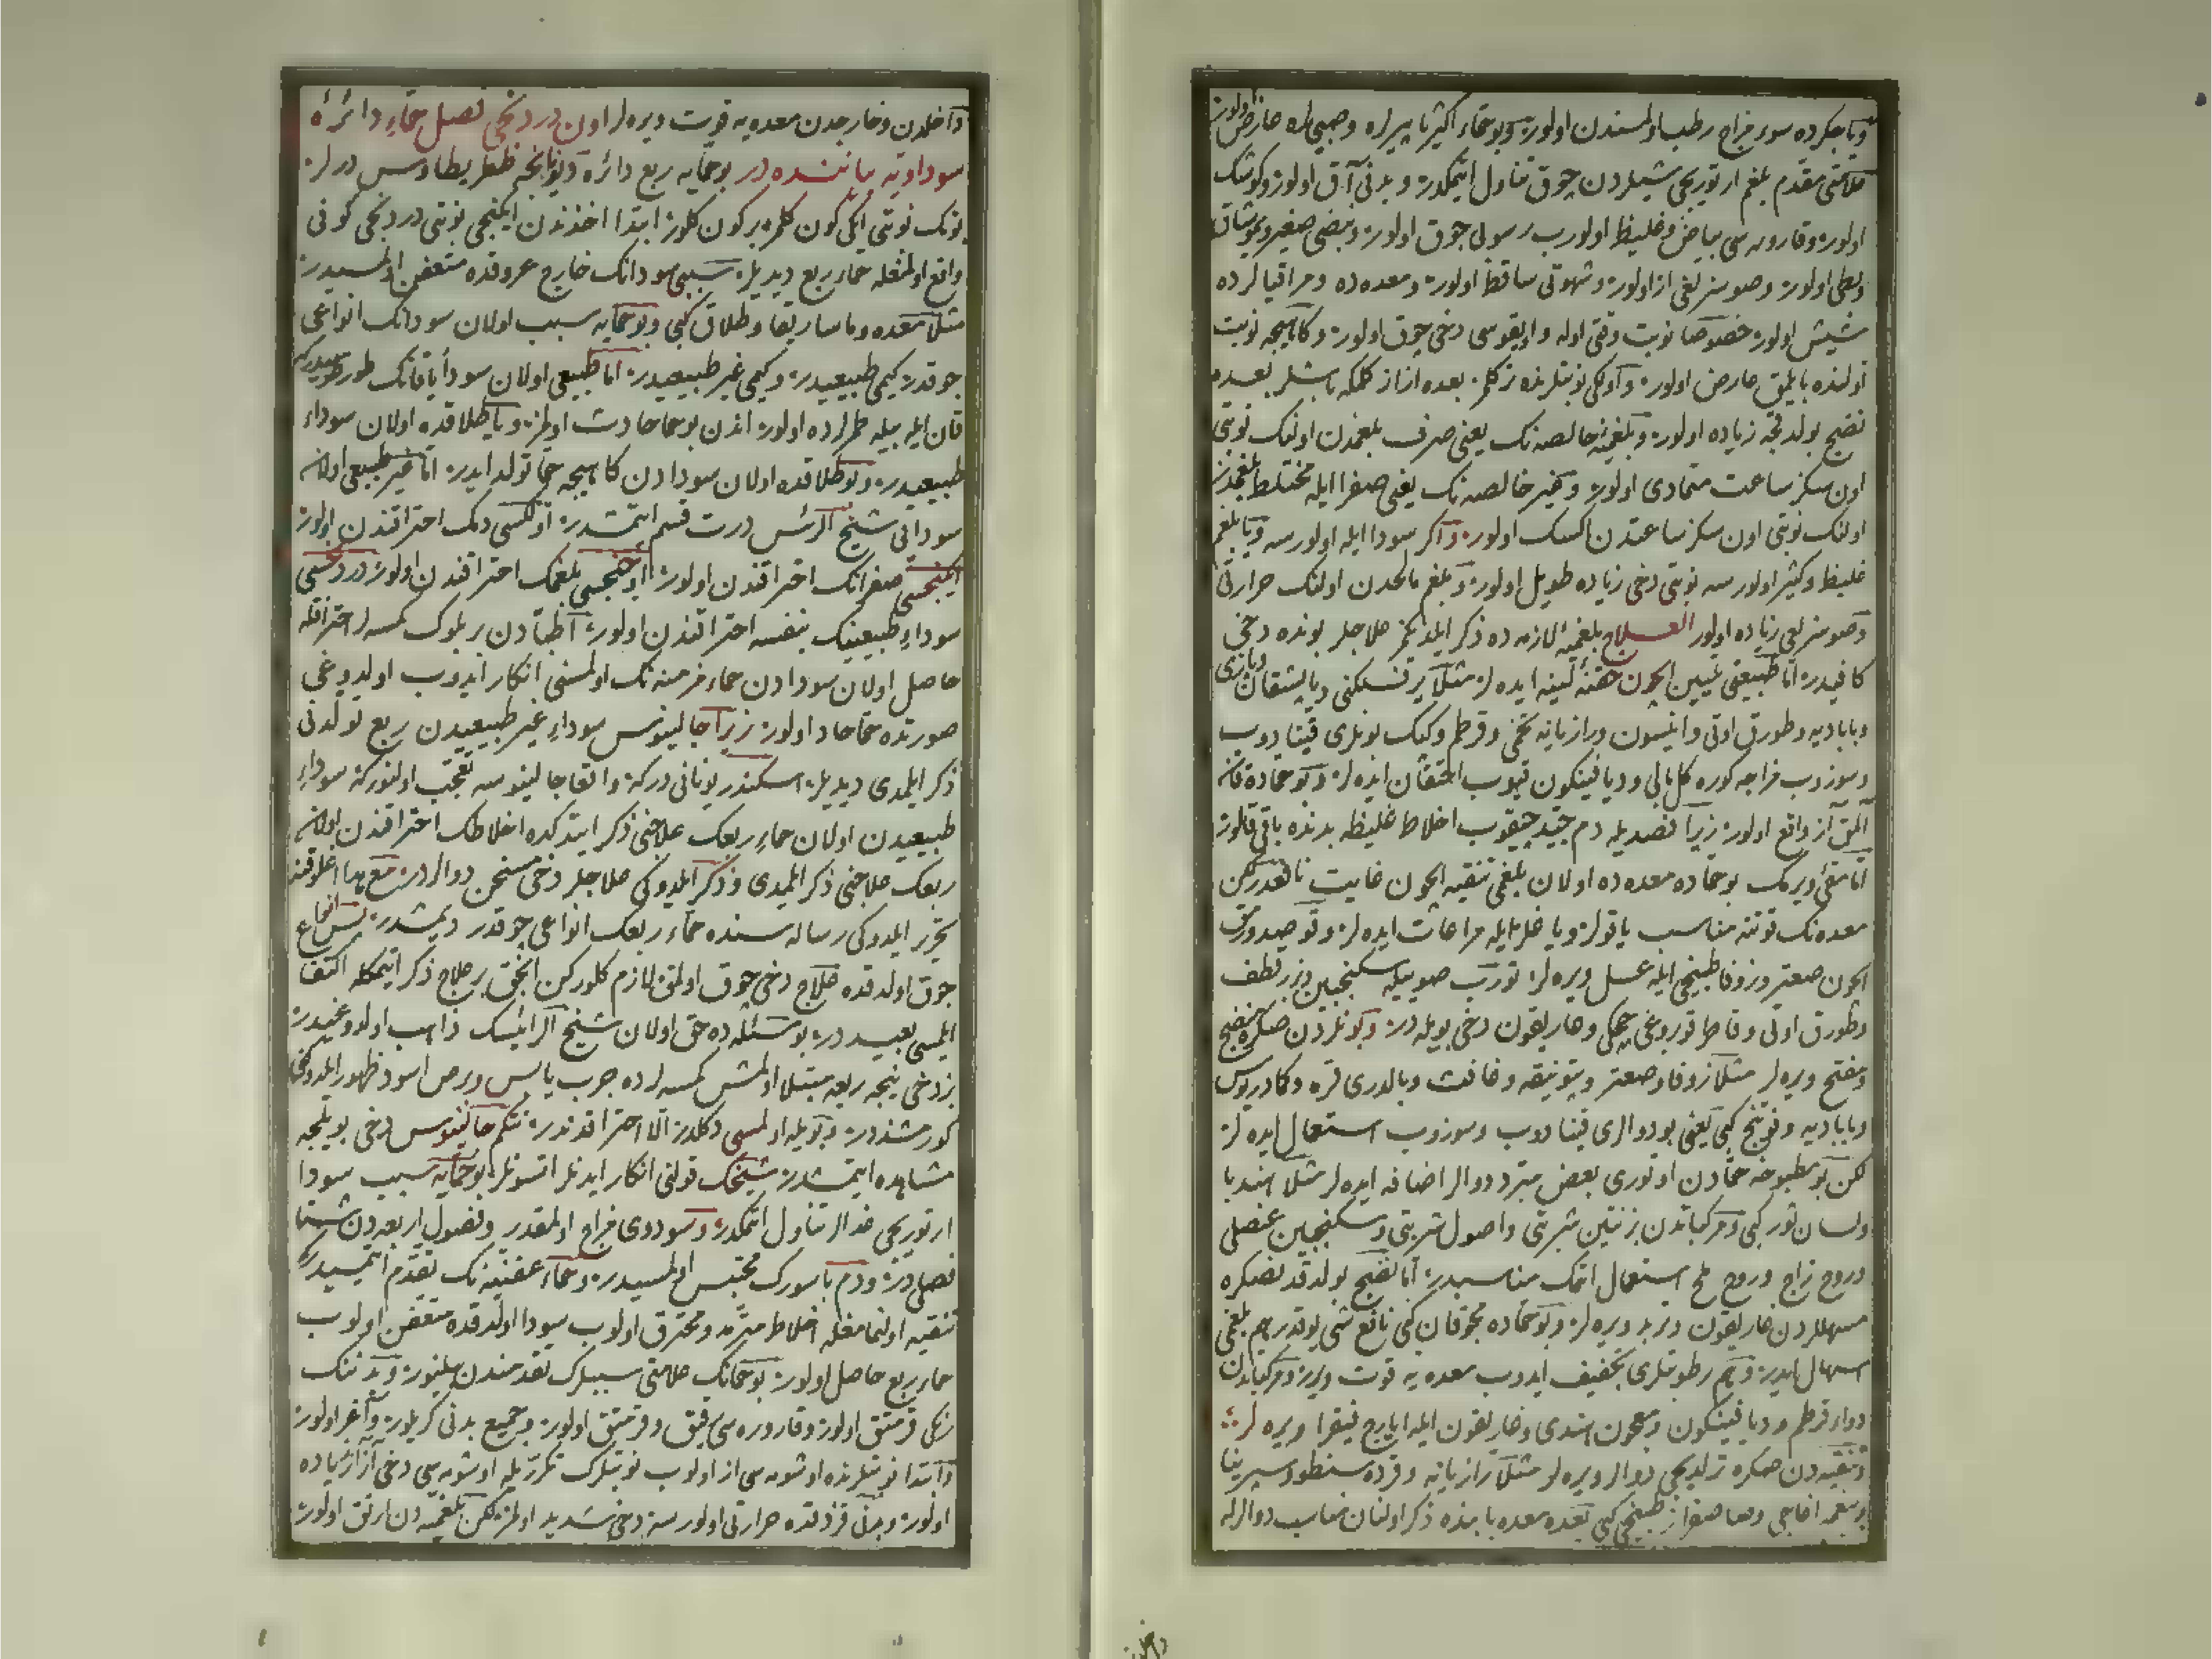 ویا جکرده سوء مزاج رطب اولمسندن اولور وبو حماء اکثریا پیرلره وصبیلره عارض اولور
علامتی مقدم بلغم ارتوریجی شیلردن چوق تناول ایتمکدر وبدنی آق اولور وکوشک
اولور وقاروره سی بیاض وغلیظ اولوب رسوبی چوق اولور ونبضی صغیر ویومشاق
وبطی اولور وصوسزلغی از اولور وشهوتی ساقط اولور ومعده ده ومراقیالرده
شیش اولور خصوصا نوبت وقتی اوله واویقوسی دخی چوق اولور وکاهیجه نوبت
اولنده بایلمق عارض اولور واولکی نوبتلرنده ترکلمز بعده از از کلمکه باشلر بعده
نضج بولدقجه زیاده اولور وبلغمیۀ خالصه نک یعنی صرف بلغمدن اولنک نوبتی
اون سکز ساعت متمادی اولور وغیر خالصه نک یعنی صفرا ایله مختلط بلغمدن
اولنک نوبتی اون سکز ساعتدن اکسک اولور واکر سودا ایله اولورسه ویا بلغم
غلیظ وکثیر اولورسه نوبتی دخی زیاده طویل اولور وبلغم مالحدن اولنک حرارتی
وصوسزلغی زیاده اولور العلاج بلغمیۀ لازمه ده ذکر ایلدیکمز علاجلر بونده دخی
کافیدر اما طبیعتی تلیین ایچون حقنۀ لینه ایده لر مثلا
وبابادیه وطورق اوتی وانیسون ورازیانه تخمی وقرطم وکپک بونلری قینادوب
وسوزوب مزاجه کوره کل بالی ودیافینکون قیوب احتقان ایده لر وبو حماده قان
المق از واقع اولور زیرا فصد ایله دم جید چیقوب اخلاط غلیظه بدنده باقی قالور
اما مقی ویرمک بو حماده معده ده اولان بلغمی تنقیه ایچون غایت نافعدر لکن
معده نک قوتنه مناسب
ایچون صعتر وزوفا طبیخی ایله عسل ویره لر تورب صوییله سکنجبین وبزر قطف
وطورق اوتی وقاطر چیچکی وغاریقون دخی بویله در وبونلردن صکره منضج
ومفتح ویره لر مثلا زوفا وصعتر وغافت وبالدری قره وکمادریوس
وبابادیه وفوتنج کبی یعنی بو دوالری قینادوب وسوزوب استعمال ایده لر
لکن بو مطبوخه حمادن اوتوری بعض مبرد دوالر اضافه ایده لر مثلا هندبا
ولسان ثور کبی ومرکباتدن شربتی واصول شربتی وسکنجبین عنصلی
وروح زاج وروح ملح استعمال اتمک مناسبدر اما نضج بولدقدنصکره
مسهللردن غاریقون وتربد ویره لر وبو حماده کبی نافع شی یوقدر هم بلغمی
اسهال ایدر وهم رطوبتلری تخفیف ایدوب معده یه قوت ویرر ومرکباتدن
دواء قرطم ودیافینیکون ومعجون هندی وغاریقون ایله ایارج فیقرا ویره لر
وتنقیه دن صکره ترلدیجی دوالر ویره لر مثلا رازیانه
کبی بعده معده بابنده ذکر اولنان مناسب دوالرله
داخلدن
داخلدن وخارجدن معده یه قوت ویره لر اون دردنجی فصل حماء دائرۀ
سوداویه بیاننده در بو حمایه ربع دائره ویونانجه طیطریطاوس درلر
بونک نوبتی ایکی کون کلمز بر کون کلور ابتدا اخذندن ایکنجی نوبتی دردنجی کونی
واقع اولمغله حماء ربع دیدیلر سببی سودانک خارج عروقده متعفن اولمسیدر
مثلا معده وماساریقا وطلاق کبی وبو حمایه سبب اولان سودانک انواعی
چوقدر کیمی طبیعیدر وکیمی غیر طبیعیدر اما طبیعی اولان سودا یا قانک طورطوسیدرکه
قان ایله بیله طمرلرده اولور اندن بو حما حادث اولمز ویا طلاقده اولان سوداء
طبیعیدر وبو طلاقده اولان سودادن کاهیجه حما تولد ایدر اما غیر طبیعی اولان
سودایی شیخ الرئیس درت قسم ایتمشدر اولکسی دمک احتراقندن اولور
ایکنجیسی صفرانک احتراقندن اولور اوچنجیسی بلغمک احتراقندن اولور دردنجیسی
سوداء طبیعینک بنفسه احتراقندن اولور اطبادن بر بلوک کمسه لر احتراقله
حاصل اولان سودادن حماء مزمنه نک اولمسنی انکار ایدوب اولدوغی
صورتده حما حاد اولور زیرا جالینوس سوداء غیر طبیعیدن ربع تولدنی
ذکر ایلمدی دیدیلر اسکندر یونانی درکه واقعا جالینوسه تعجب اولنورکه سوداء
طبیعیدن اولان حماء ربعک علاجنی ذکر ایتدکده اخلاطک احتراقندن اولان
ربعک علاجنی ذکر ایلمدی وذکر ایلدوکی علاجلر دخی مسخن دوالردر مع هذا اغلوقنه
تحریر ایلدوکی رساله سنده حماء ربعک انواعی چوقدر دیمشدر پس انواع
چوق اولدقده علاج دخی چوق اولمق لازم کلورکن انجق بر علاج ذکر ایتمکله اکتفا
ایلمسی بعیددر بو مسئله ده حق اولان شیخ الرئیسک ذاهب اولدوغیدر
بز دخی نیجه ربعه مبتلا اولمش کمسه لرده جرب یابس وبرص اسود ظهور ایلدوکنی
کورمشزدر وبویله اولمسی دکلدر الا احتراقدندر نتکم جالینوس دخی بویلجه
مشاهده ایتمشدر شیخک قولنی انکار ایدنلر اتسونلر بو حمایه سبب سودا
ارتوریجی غدالر تناول اتمکدر وسوداوی مزاج اولمقدر وفصول اربعه دن شتا
فصلیدر ودم باسورک محتبس اولمسیدر وحماء عفنیه نک تقدم ایتمسیدرکه
تنقیه اولنمامغله اخلاط مترمد ومحترق اولوب سودا اولدقده متعفن اولوب
حماء ربع حاصل اولور بو حمانک علامتی سببلرک تقدمندن بیلنور وبدننک
رنکی قرمتق اولور وقاروره سی رقیق وقرمتق اولور وجمیع بدنی کریلور واغر اولور
وابتدا نوبتلرنده اوشومه سی از اولوب نوبتلرک تکرریله اوشومه سی دخی از از زیاده
اولور وبدنی قزدقده حرارتی اولورسه دخی شدید اولمز لکن بلغمیه دن ارتق اولور